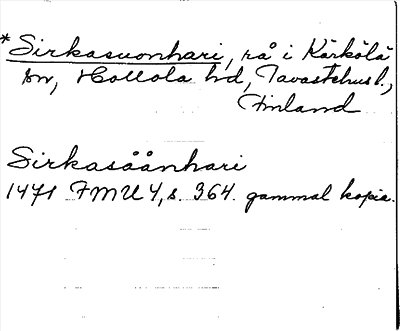 *Sirkasuonhari, rå i Kärkölä
sn, Hollola hd, Tavastehus l.,
Finland
Sirkasåånhari
1471 FMU 4, s. 364. gammal kopia.